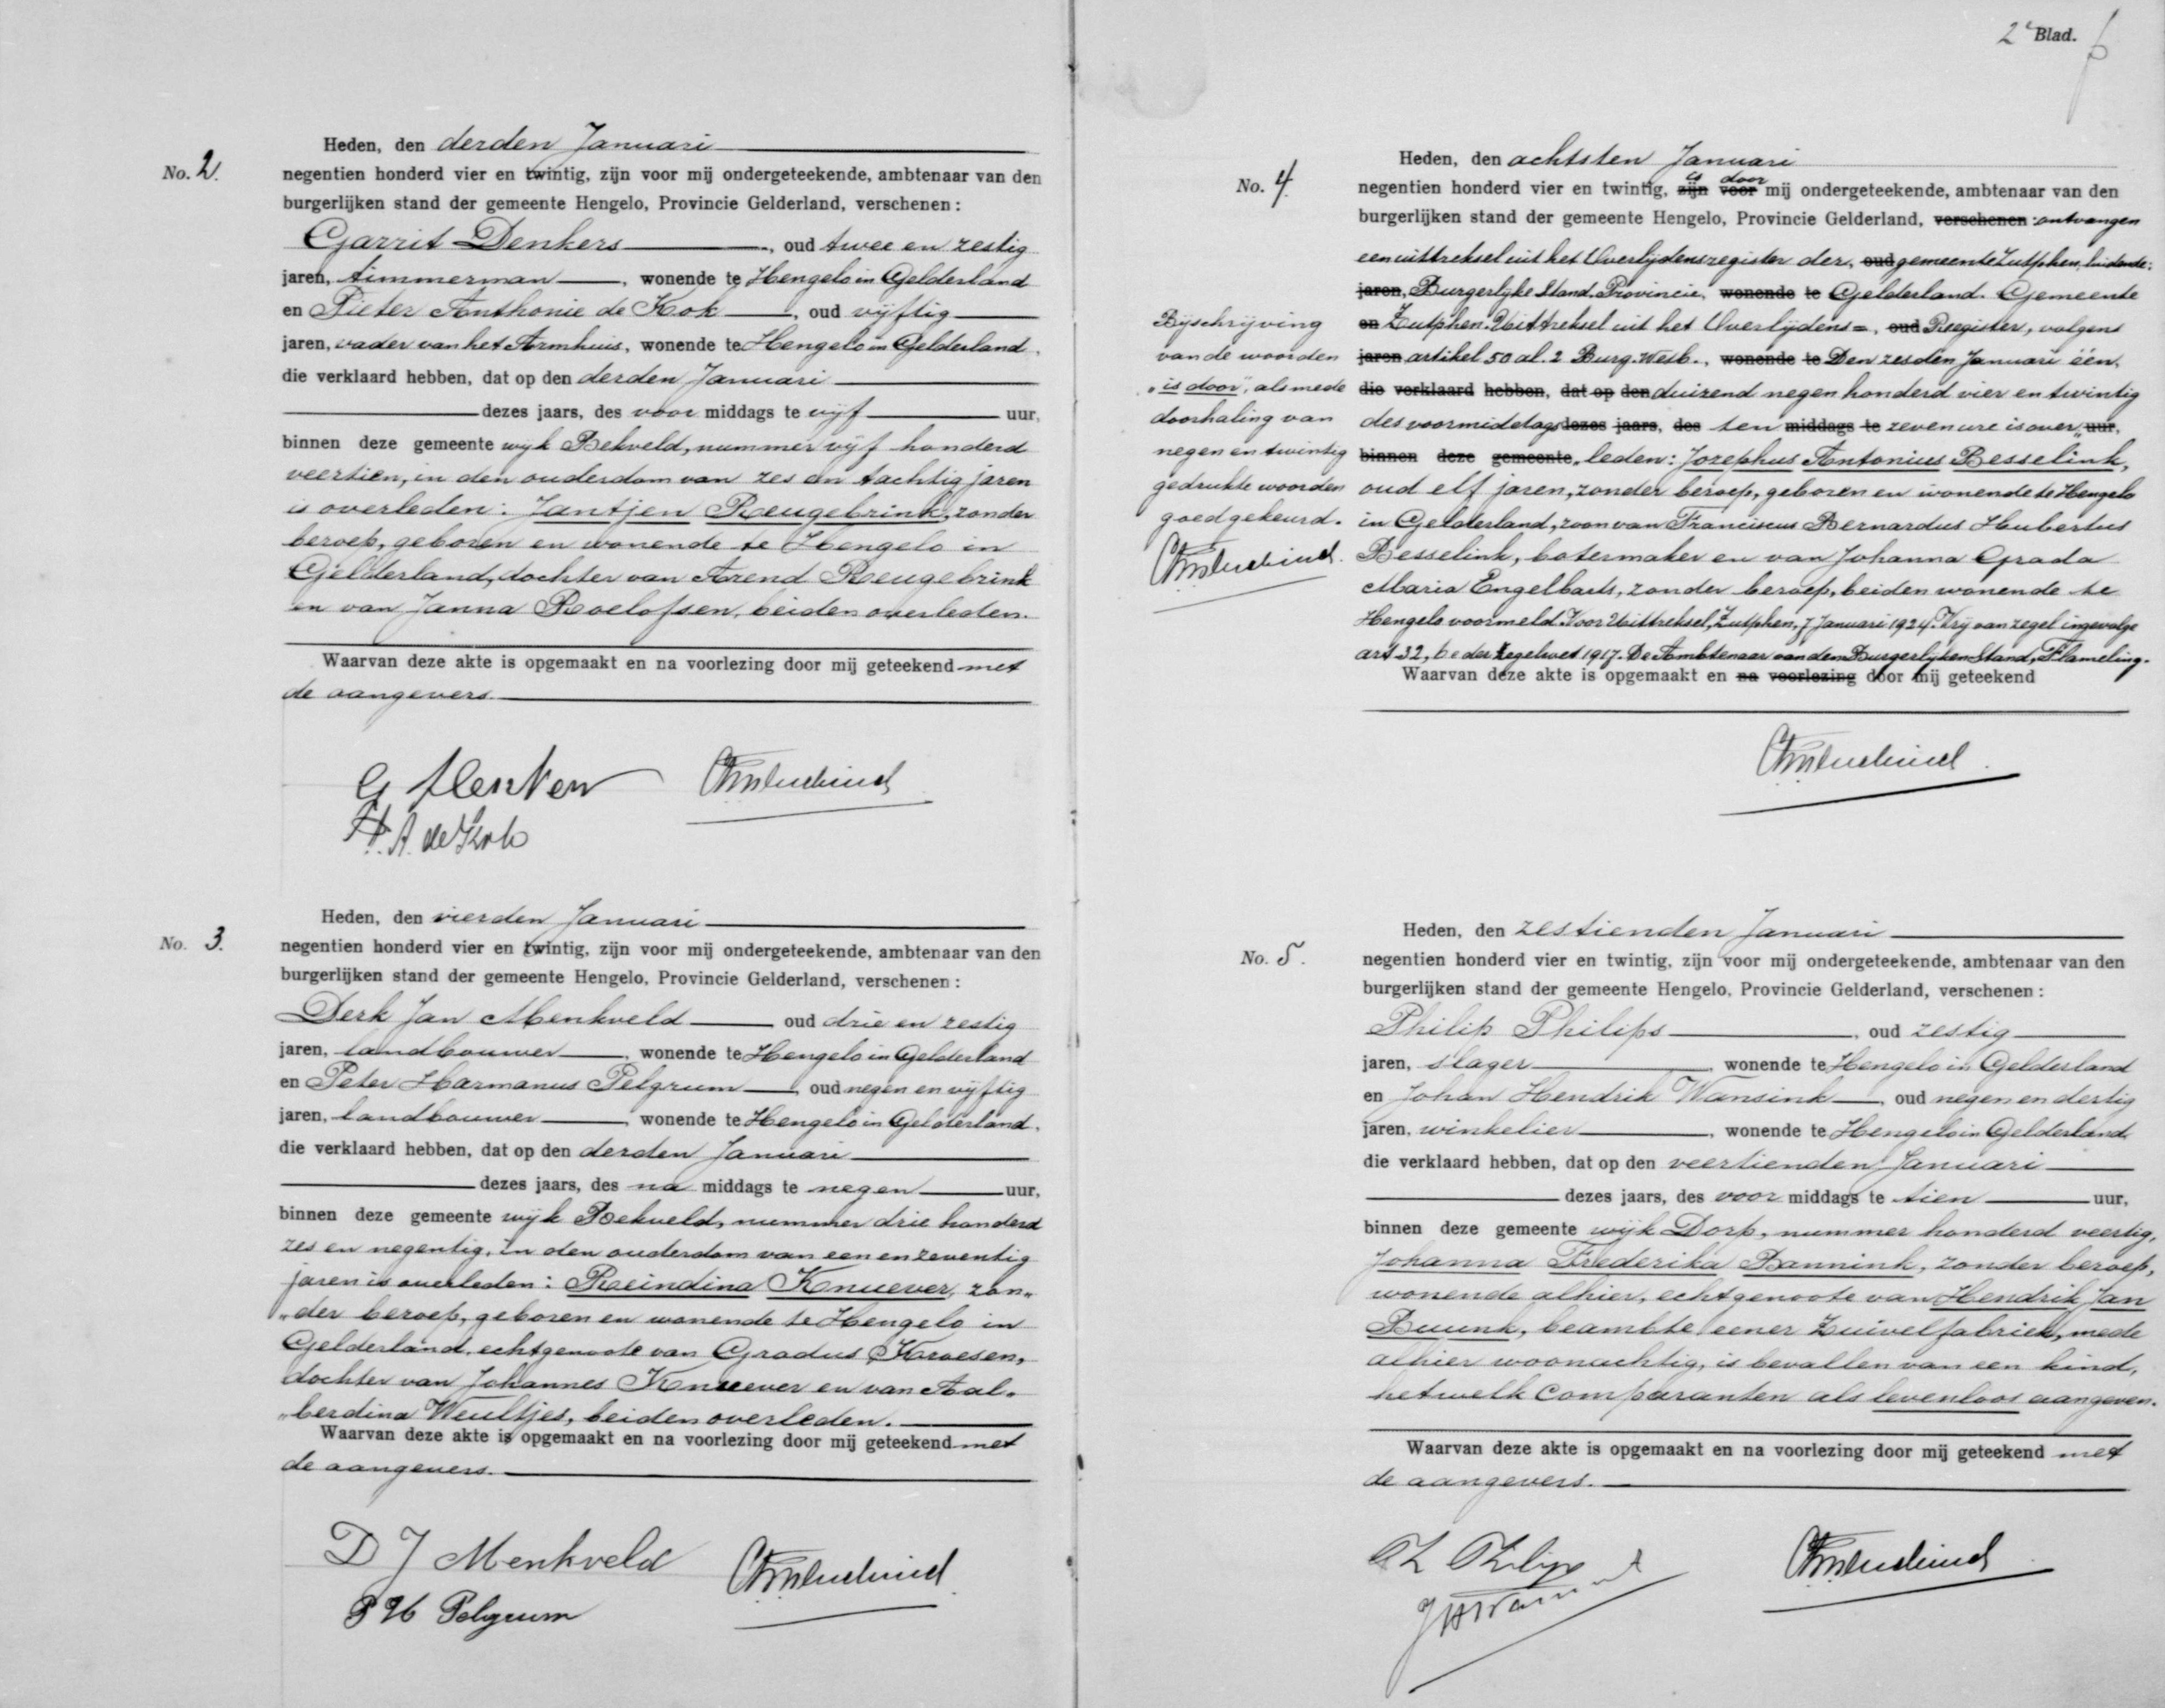 No. 2.
Heden, den derden Januari
negentien honderd vier en twintig, zijn voor mij ondergeteekende, ambtenaar van den
burgerlijken stand der gemeente Hengelo, Provincie Gelderland, verschenen:
Garrit Denkers, oud twee en zestig
jaren, timmerman, wonende te Hengelo in Gelderland
en Pieter Anthonie de Kok, oud vijftig
jaren, vader van het Armhuis, wonende te Hengelo in Gelderland,
die verklaard hebben, dat op den derden Januari
dezes jaars, des voor middags te vijf uur,
binnen deze gemeente wijk Bekveld, nummer vijf honderd
veertien, in den ouderdom van zes en tachtig jaren
is overleden: Jantjen Reugebrink, zonder
beroep, geboren en wonende te Hengelo in
Gelderland, dochter van Arend Reugebrink
en van Janna Roelofsen, beiden overleden.
Waarvan deze akte is opgemaakt en na voorlezing door mij geteekend met
de aangevers.
G Denkers
P. A. de Kok
No. 3.
Heden, den vierden Januari
negentien honderd vier en twintig, zijn voor mij ondergeteekende, ambtenaar van den
burgerlijken stand der gemeente Hengelo, Provincie Gelderland, verschenen:
Derk Jan Menkveld oud drie en zestig
jaren, landbouwer, wonende te Hengelo in Gelderland
en Peter Harmanus Pelgrum, oud negen en vijftig
jaren, landbouwer, wonende te Hengelo in Gelderland,
die verklaard hebben, dat op den derden Januari
dezes jaars, des na middags te negen uur,
binnen deze gemeente wijk Bekveld, nummer drie honderd
zes en negentig, in den ouderdom van een en zeventig
jaren is overleden: Reindina Knuever, zon„
„der beroep, geboren en wonende te Hengelo in
Gelderland, echtgenoote van Gradus Kroesen,
dochter van Johannes Knuever en van Aal„
„berdina Weultjes, beiden overleden.
Waarvan deze akte is opgemaakt en na voorlezing door mij geteekend met
de aangevers.
D J Menkveld
P H Pelgrum
2e Blad.
No. 4.
Heden, den achtsten Januari
is door
negentien honderd vier en twintig, zijn voor mij ondergeteekende, ambtenaar van den
burgerlijken stand der gemeente Hengelo, Provincie Gelderland, verschenen: ontvangen
een uittreksel uit het Overlijdensregister der, oud gemeente Zutphen, luidende:
jaren, Burgerlijke Stand. Provincie, wonende te Gelderland. Gemeente
en Zutphen. Uittreksel uit het Overlijdens=, oud Register, volgens
jaren artikel 50 al. 2 Burg. Wetb., wonende te Den zesden Januari één,
die verklaard hebben, dat op den duizend negen honderd vier en twintig
des voormiddags dezes jaars, des ten middags te zeven ure is over„ uur,
binnen deze gemeente „leden: Jozephus Antonius Besselink,
oud elf jaren, zonder beroep, geboren en wonende te Hengelo
in Gelderland, zoon van Franciscus Bernardus Hubertus
Besselink, botermaker en van Johanna Grada
Maria Engelbarts, zonder beroep, beiden wonende te
Hengelo voormeld. Voor Uittreksel, Zutphen, 7 Januari 1924. Vrij van zegel ingevolge
art 32, b e der Zegelwet 1917. De Ambtenaar van den Burgerlijken Stand, Flameling.
Waarvan deze akte is opgemaakt en na voorlezing door mij geteekend
Bijschrijving
van de woorden
„is door", alsmede
doorhaling van
negen en twintig
gedrukte woorden
goedgekeurd.
No. 5.
Heden, den zestienden Januari
negentien honderd vier en twintig, zijn voor mij ondergeteekende, ambtenaar van den
burgerlijken stand der gemeente Hengelo, Provincie Gelderland, verschenen:
Philip Philips, oud zestig
jaren, slager, wonende te Hengelo in Gelderland
en Johan Hendrik Wansink, oud negen en dertig
jaren, winkelier, wonende te Hengelo in Gelderland,
die verklaard hebben, dat op den veertienden Januari
dezes jaars, des voor middags te tien uur,
binnen deze gemeente wijk Dorp, nummer honderd veertig,
Johanna Frederika Bannink, zonder beroep,
wonende alhier, echtgenoote van Hendrik Jan
Buunk, beambte eener Zuivelfabriek, mede
alhier woonachtig, is bevallen van een kind,
hetwelk Comparanten als levenloos aangeven.
Waarvan deze akte is opgemaakt en na voorlezing door mij geteekend met
de aangevers.
Philips